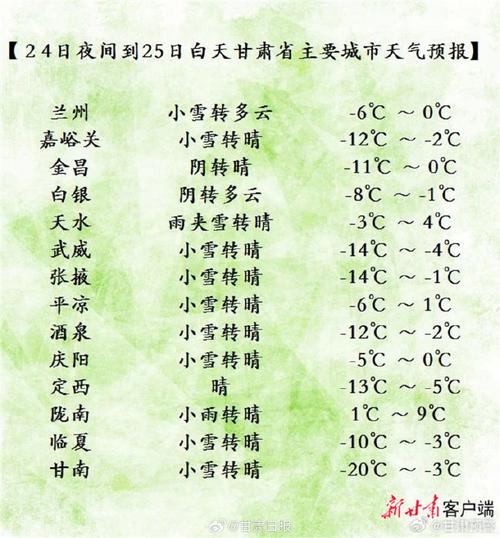 【24日夜间到25日白天甘肃省主要城市天气预报】
兰州 小雪转多云 -6℃ ～ 0℃
嘉峪关 小雪转晴 -12℃ ～ -2℃
金昌 阴转晴 -11℃ ～ 0℃
白银 阴转多云 -8℃ ～ -1℃
天水 雨夹雪转晴 -3℃ ～ 4℃
武威 小雪转晴 -14℃ ～ -4℃
张掖 小雪转晴 -14℃ ～ -1℃
平凉 小雪转晴 -6℃ ～ 1℃
酒泉 小雪转晴 -12℃ ～ -2℃
庆阳 小雪转晴 -5℃ ～ 0℃
定西 晴 -13℃ ～ -5℃
陇南 小雨转晴 1℃ ～ 9℃
临夏 小雪转晴 -10℃ ～ -3℃
甘南 小雪转晴 -20℃ ～ -3℃
新甘肃客户端
@甘肃日报